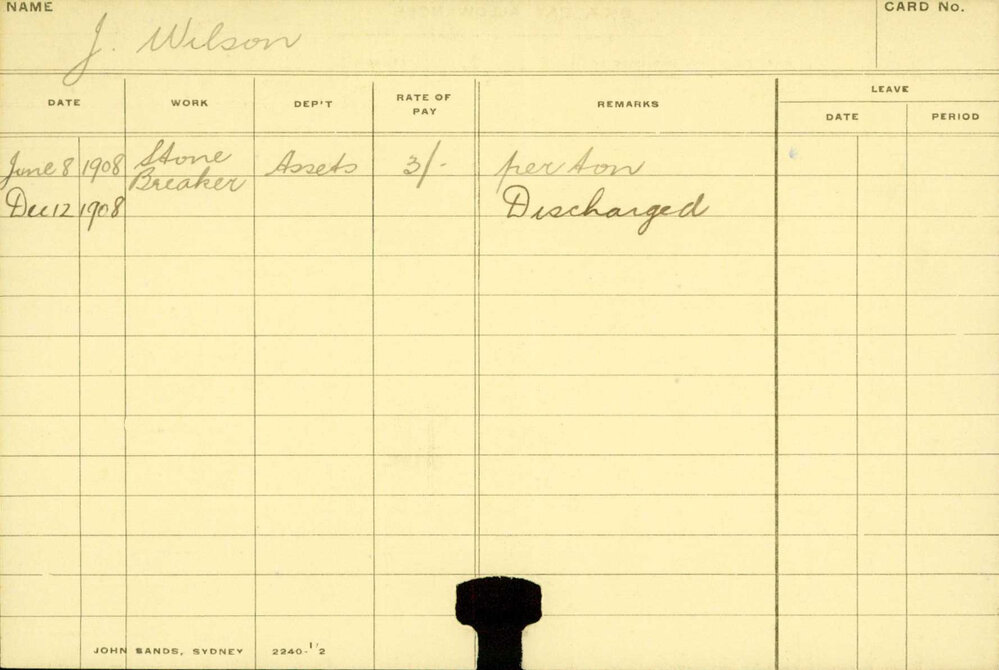 NAME J. Wilson CARD No.
DATE WORK DEP'T RATE OF PAY REMARKS LEAVE
DATE PERIOD
June 8 1908 Stone Breaker Assets 3/- per ton
Dec 12 1908 Discharged
JOHN SANDS, SYDNEY 2240-